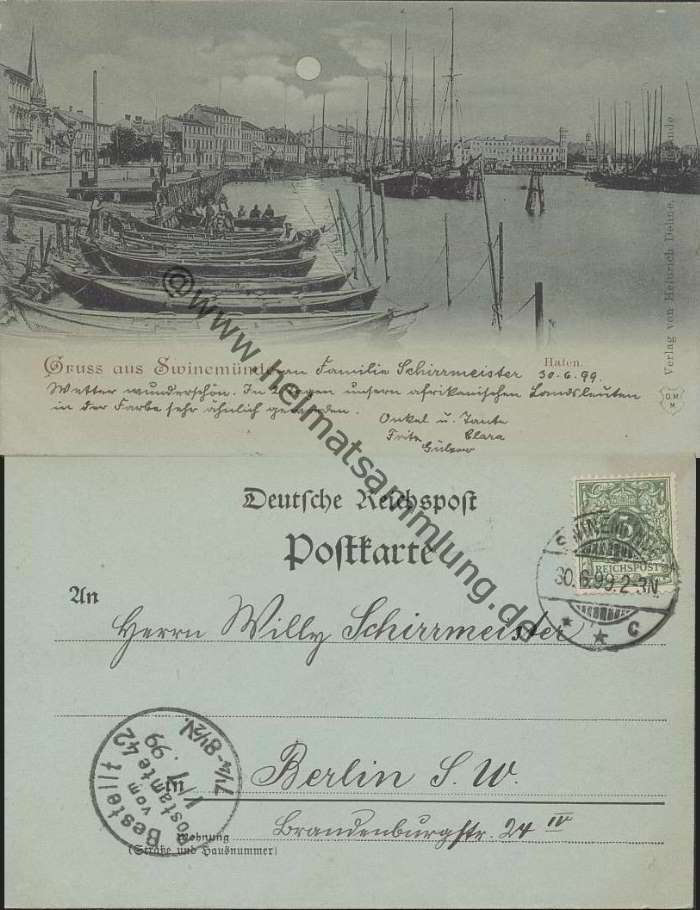 Verlag von Heinrich Dehne,
Gruss aus Swinemünde
Hafen.
von Familie Schirrmeister 30.6.99.
Wetter wunderschön. In 2 Tagen unsern afrikanischen Landsleuten
in der Farbe sehr ähnlich geworden.
Onkel u. Tante
Fritz Clara
D.M.
M
www.heimatsammlung.de
Deutsche Reichspost
Postkarte
REICHSPOST
30.6.99.2-3N.
* * C
An
Herrn Willy Schirrmeister
Bestellt
vom
Postamte 42
1/7 .99
7¼-8½V.
in Berlin S.W.
Brandenburgstr. 24 IV
Wohnung
(Straße und Hausnummer)